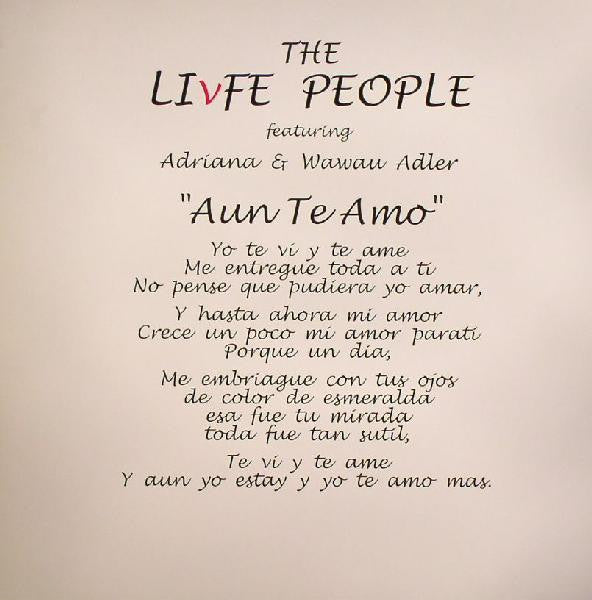 THE
LIvFE PEOPLE
featuring
Adriana & Wawau Adler
"Aun Te Amo"
Yo te vi y te ame
Me entregue toda a ti
No pense que pudiera yo amar,
Y hasta ahora mi amor
Crece un poco mi amor parati
Porque un dia,
Me embriague con tus ojos
de color de esmeralda
esa fue tu mirada
toda fue tan sutil,
Te vi y te ame
Y aun yo estay y yo te amo mas.